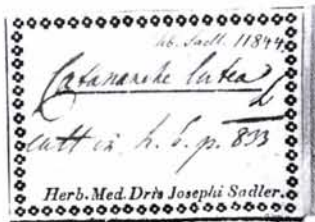 hb. Sadl. 11844
Catananche lutea
L
cult in h. b. p. 833
Herb. Med. Dris Josephi Sadler.